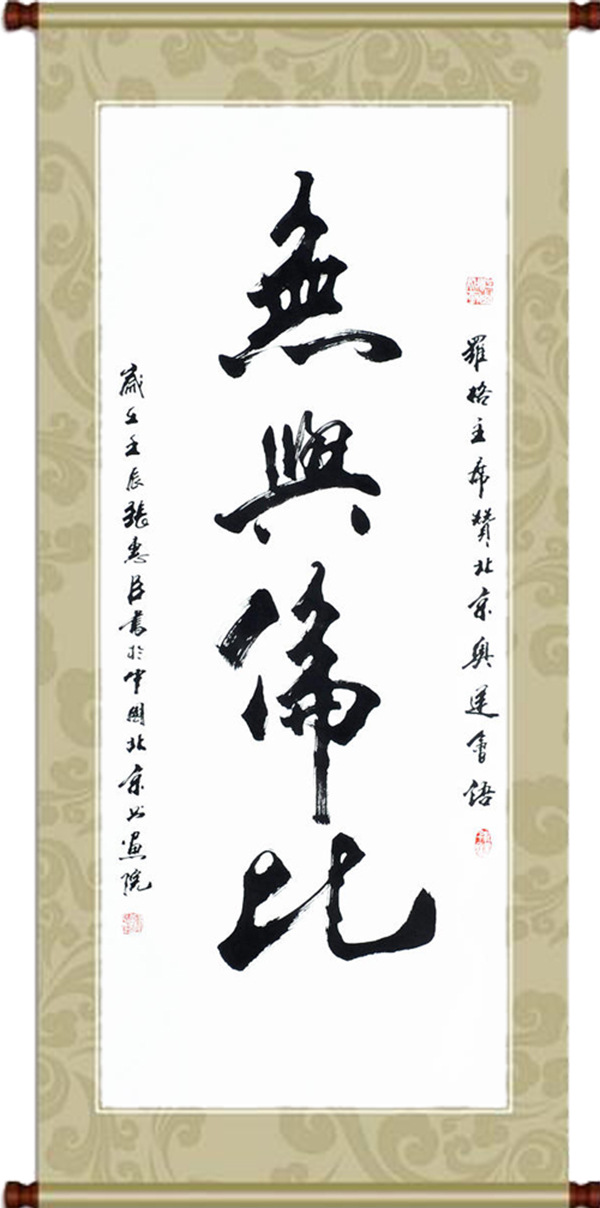 羅格主席贊北京奧運會語
無與倫比
歲在壬辰張惠臣書於中國北京書畫院